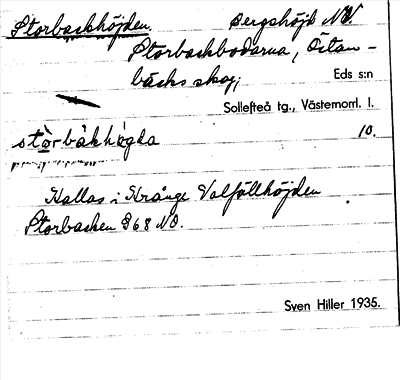 Storbackhöjden. Bergshöjd NV
Storbackbodarna, Östan-
bäcks skog; Eds s:n
Sollefteå tg., Västernorrl. l.
stòrbàkhö̀gda 10.
Kallas i Krånge Valfällhöjden
Storbacken 868 NO.
Sven Hiller 1935.